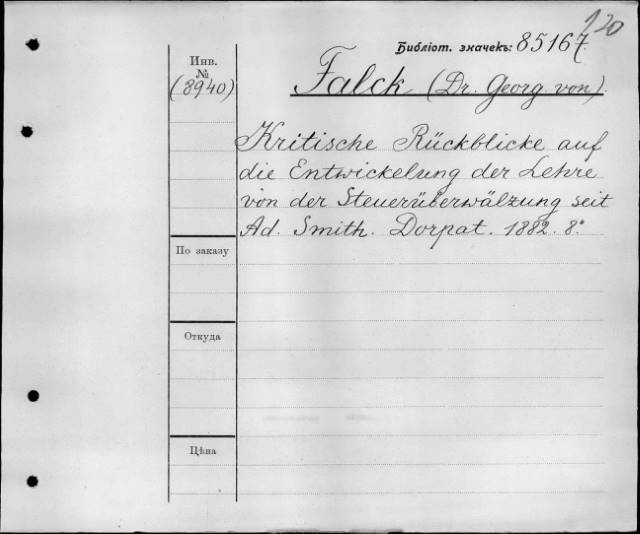 120
Библіот. значекъ: 85167
Инв.
№
(8940)
Falck (Dr. Georg von).
Kritische Rückblicke auf
die Entwickelung der Lehre
von der Steuerüberwälzung seit
Ad. Smith. Dorpat. 1882. 8°.
По заказу
Откуда
Цѣна